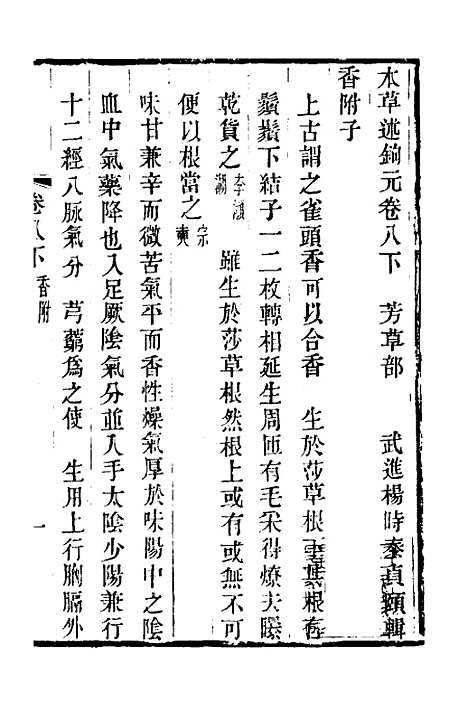 本草述鉤元卷八下　芳草部　武進楊時泰貞頤輯
香附子
上古謂之雀頭香可以合香　生於莎草根　根有
鬚鬚下結子一二枚轉相延生周匝有毛采得燎夫暴
乾貨之李瀕湖　雖生於莎草根然根上或有或無不可
便以根當之宗奭
味甘兼辛而微苦氣平而香性燥氣厚於味陽中之陰
血中氣藥降也入足厥陰氣分並入手太陰少陽兼行
十二經八脉氣分　芎藭爲之使　生用上行胸膈外
卷八下　香附　一